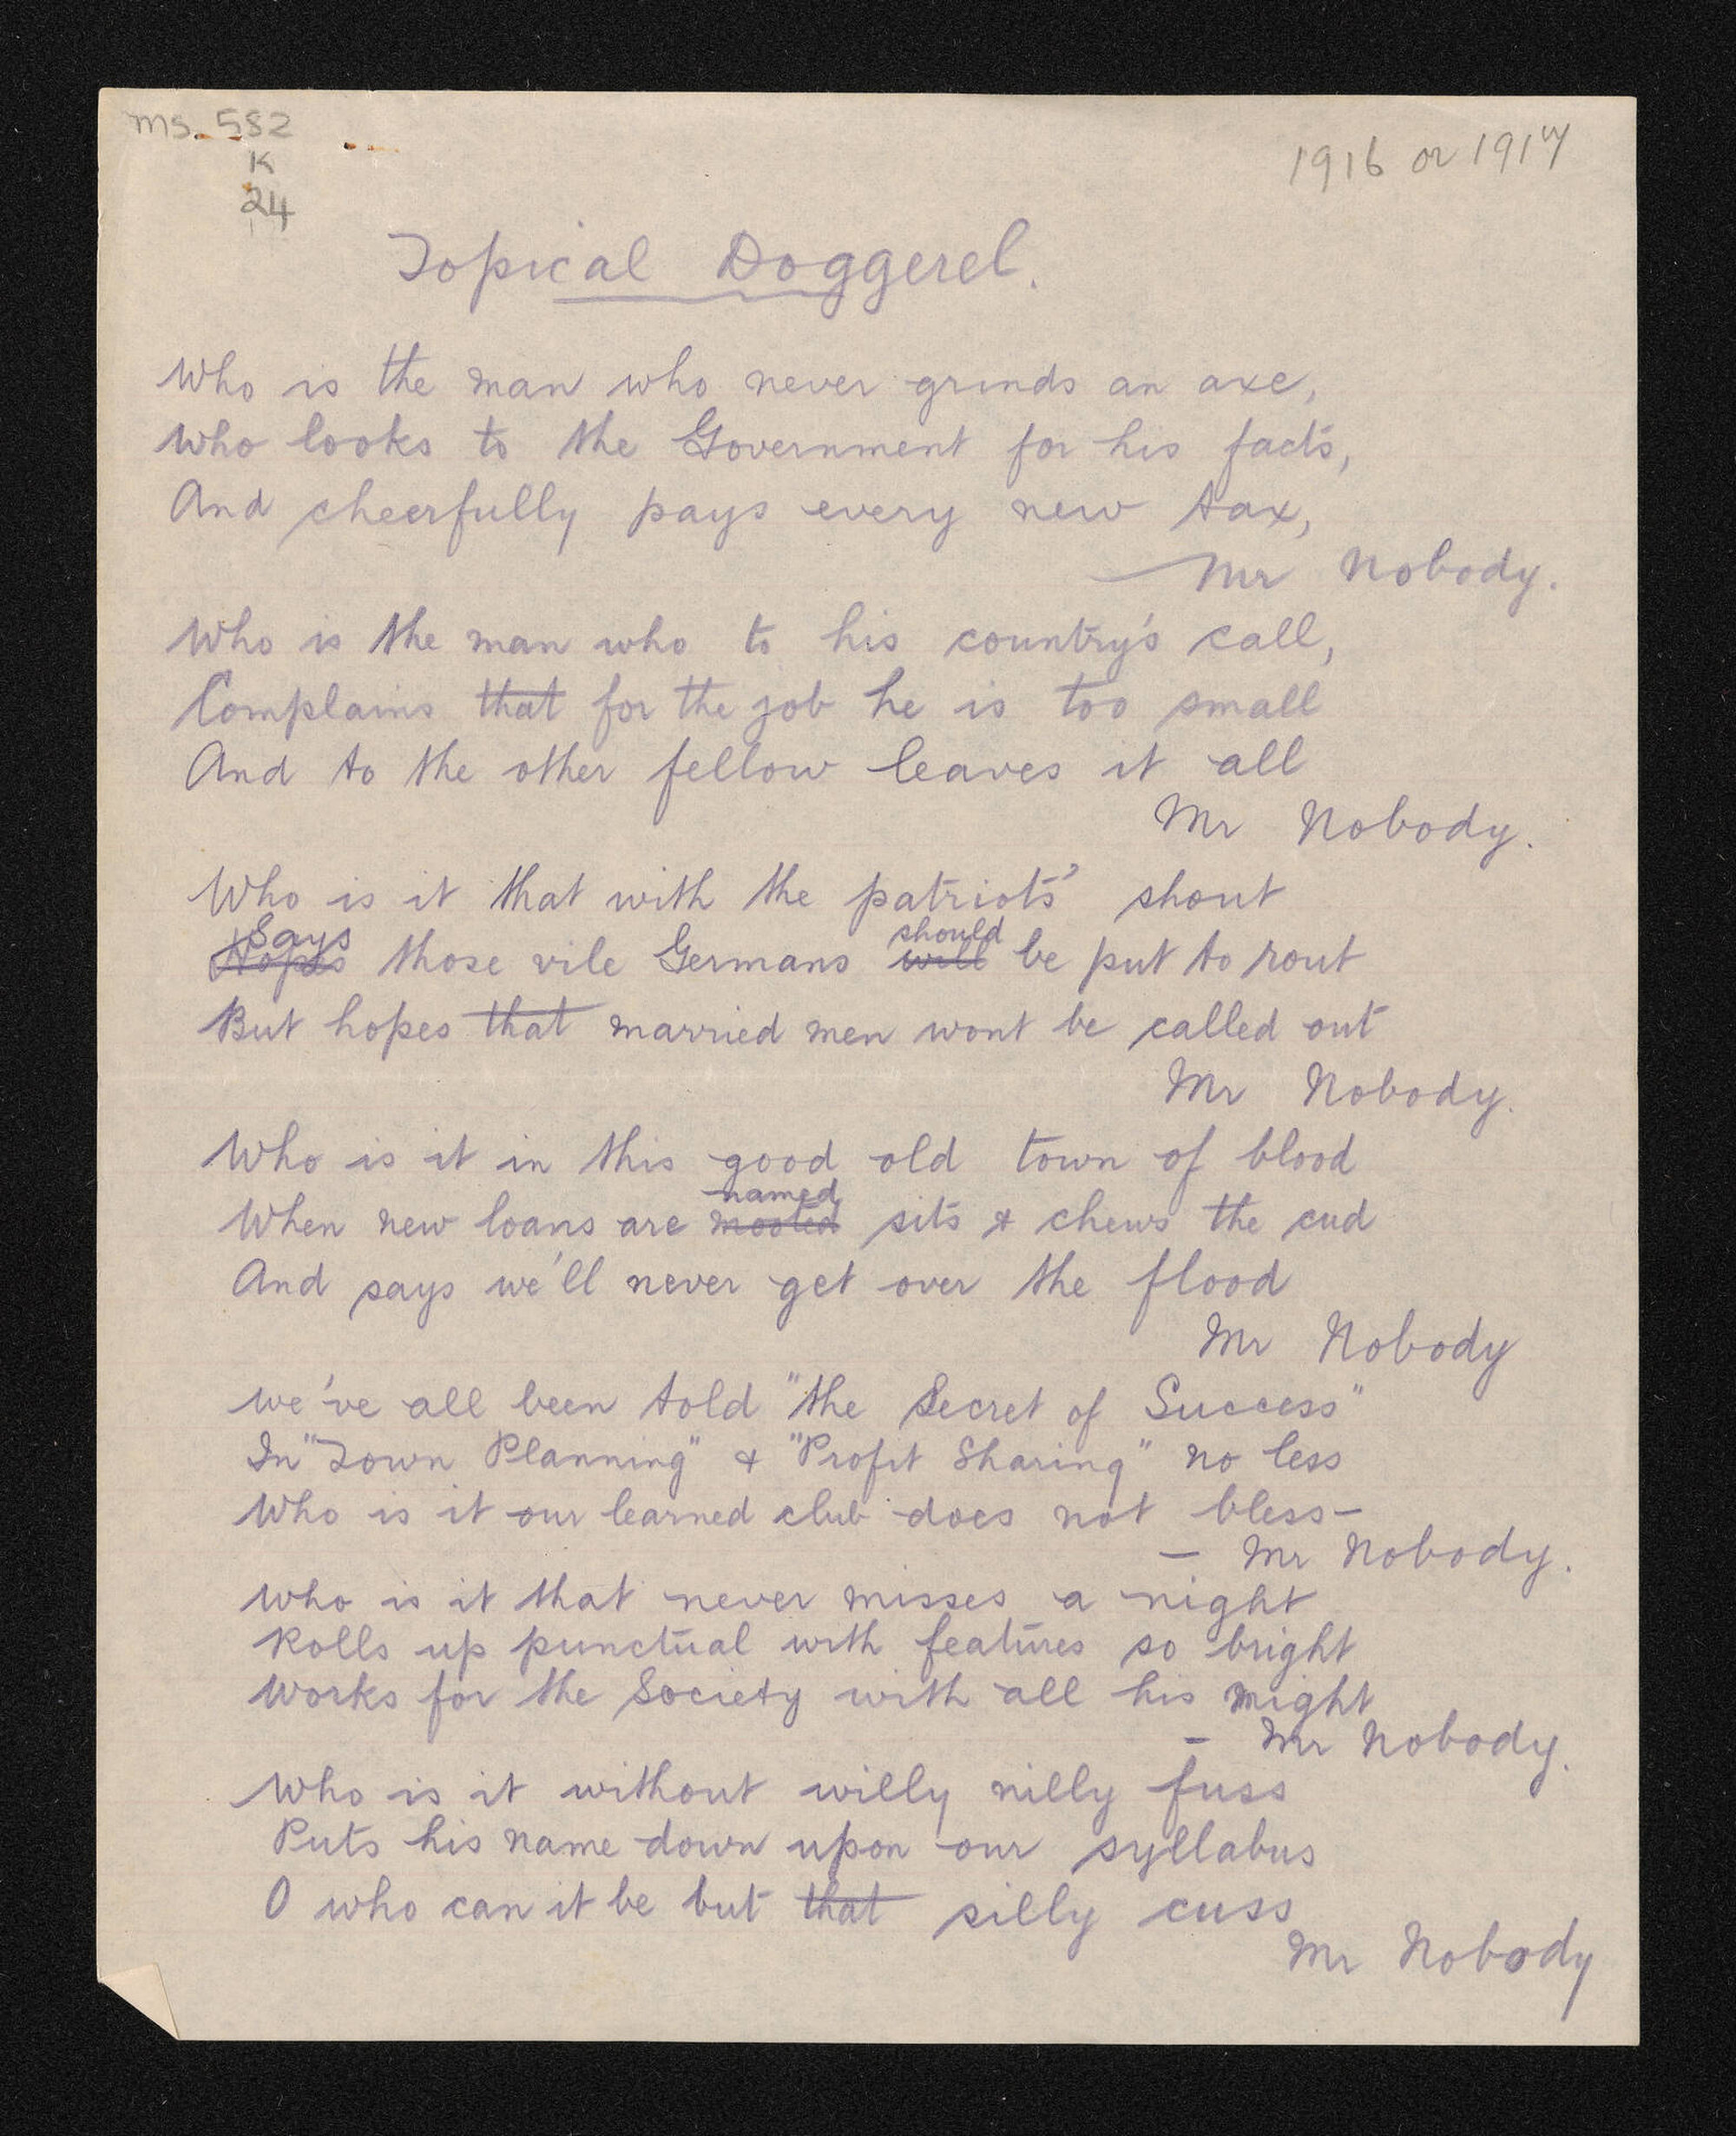 ms. 582
K
24
1916 or 1917
Topical Doggerel.
Who is the man who never grinds an axe,
Who looks to the Government for his facts,
And cheerfully pays every new tax,
— Mr Nobody.
Who is the man who to his country's call,
Complains that for the job he is too small
And to the other fellow leaves it all
Mr Nobody.
Who is it that with the patriots' shout
Says should
Hopes those vile Germans will be put to rout
But hopes that married men wont be called out
Mr Nobody.
Who is it in this good old town of blood
named
When new loans are mooted sits & chews the cud
And says we'll never get over the flood
Mr Nobody
We've all been told "the Secret of Success"
In "Town Planning" & "Profit Sharing" no less
Who is it our learned club does not bless—
— Mr Nobody.
Who is it that never misses a night
Rolls up punctual with features so bright
Works for the Society with all his might
– Mr Nobody.
Who is it without willy nilly fuss
Puts his name down upon our syllabus
O who can it be but that silly cuss
Mr Nobody